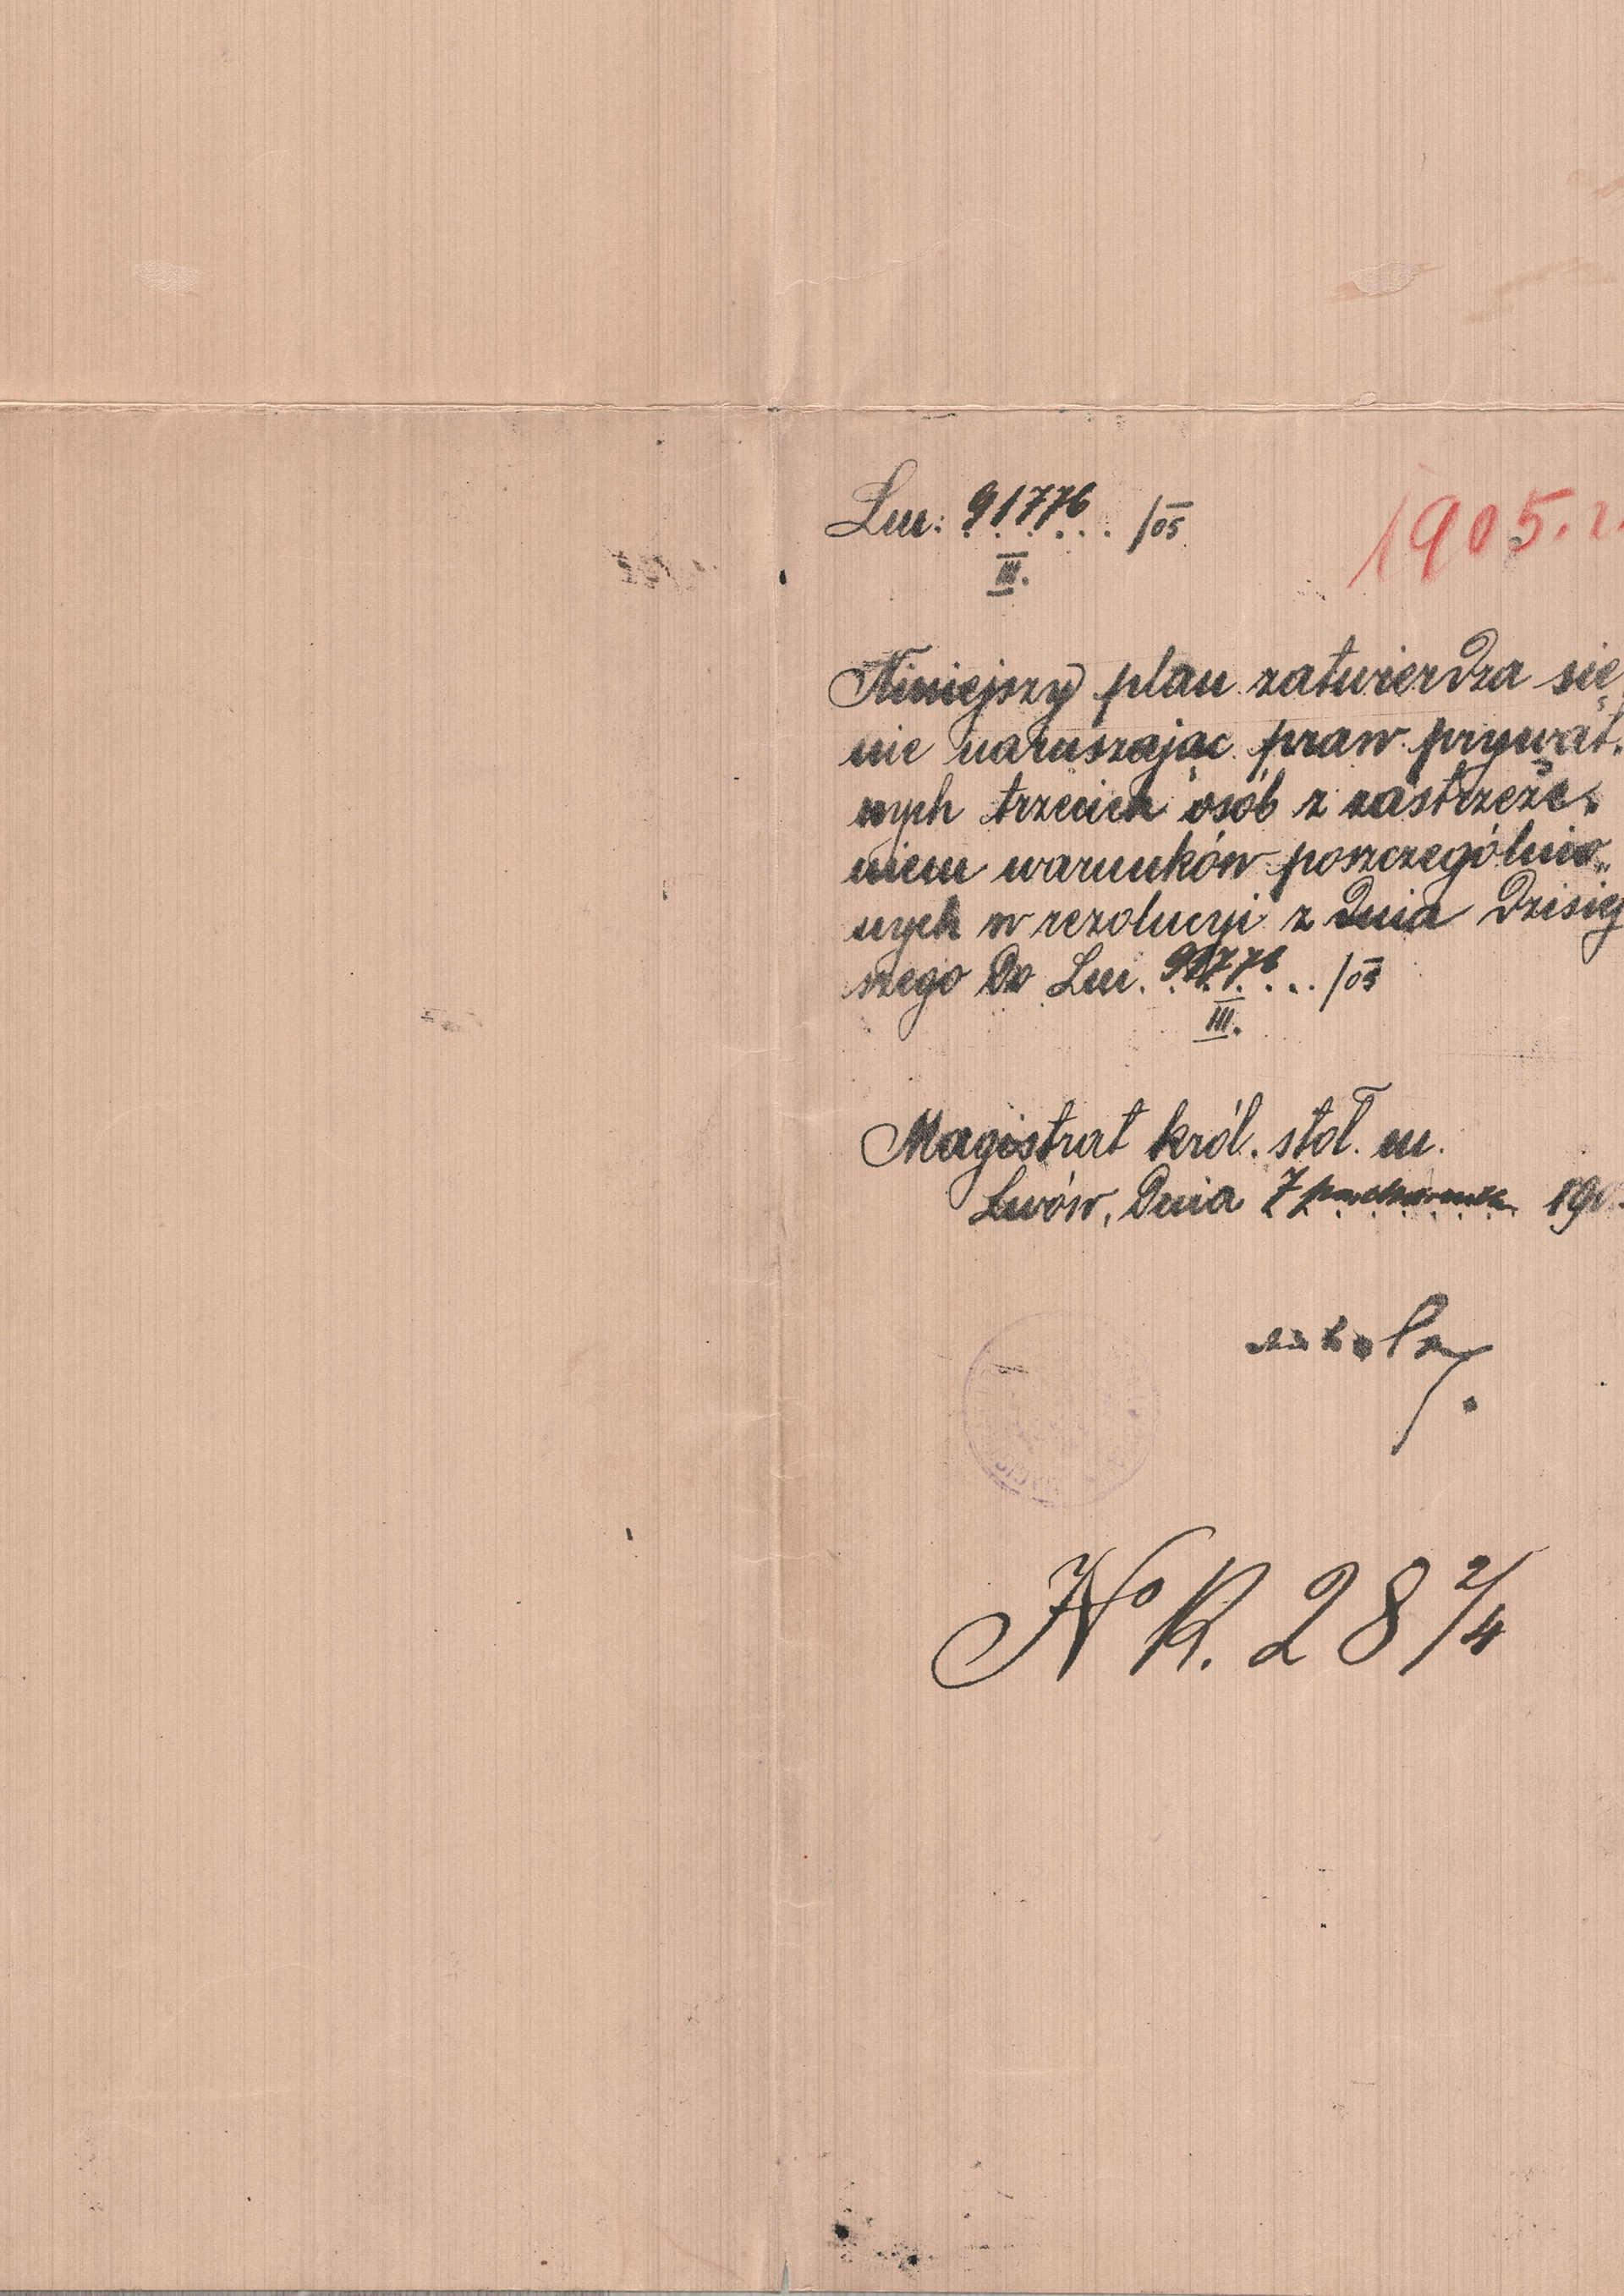 Lm: 91776 /05
III.
1905. r.
Niniejszy plan zatwierdza się
nie naruszając praw prywat.
nych trzecich osób z zastrzeże.
niem warunków poszczególnio„
nych w rezolucyi z dnia dzisiej
szego do Lm. 91776 /05
III.
Magistrat król. stoł. m.
Lwów, dnia 7 października 190
No K. 28 2/4